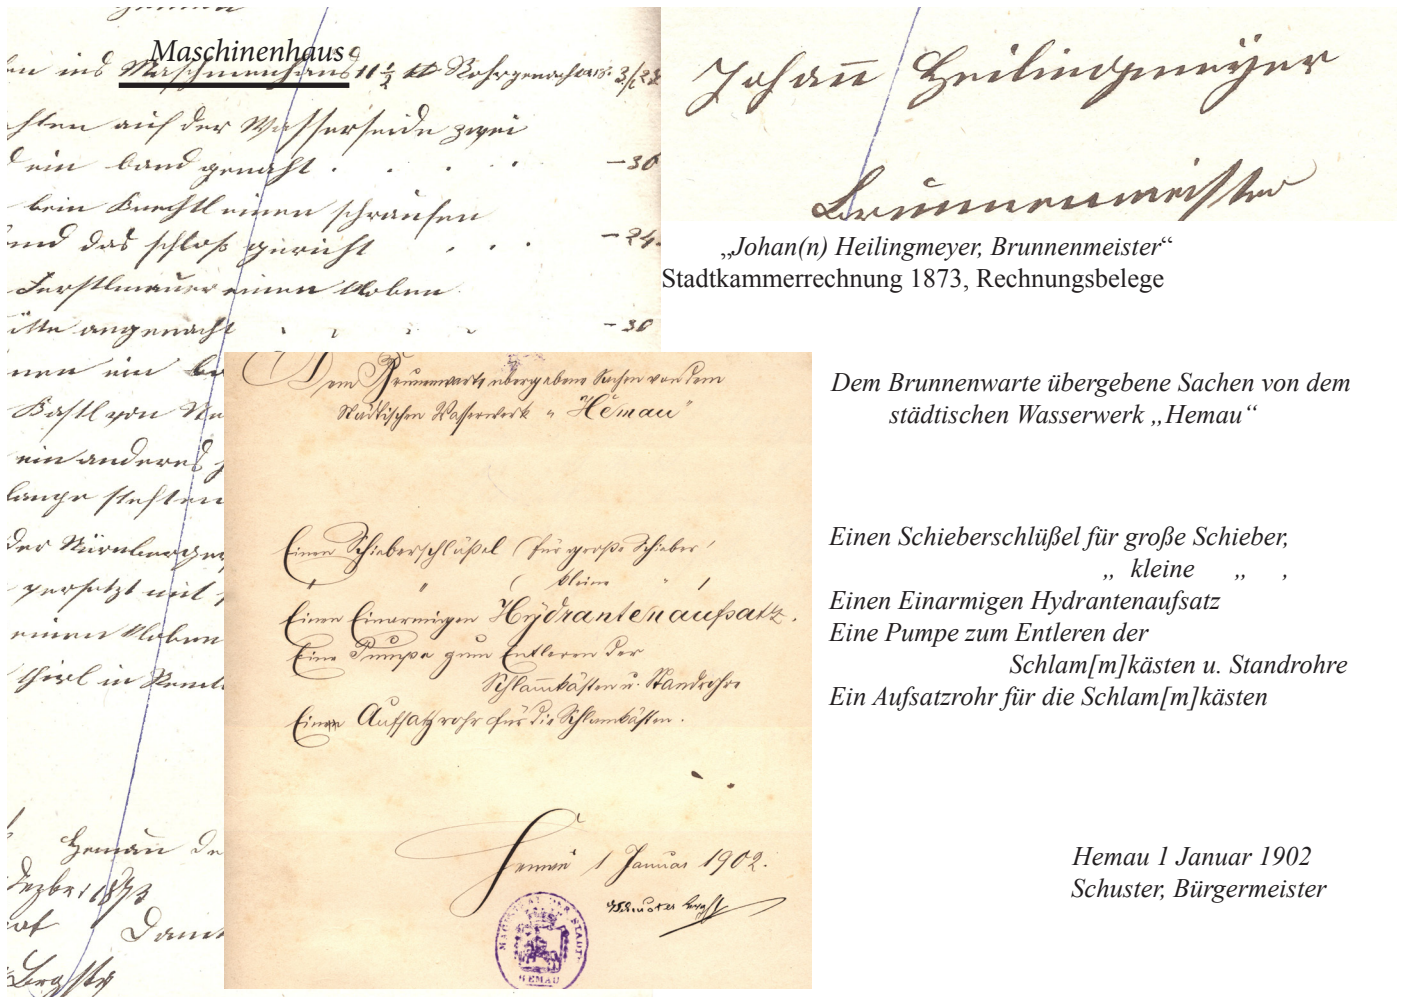 Maschinenhaus
ins Maschinenhaus 11 ½
auf der Wasserseide zwei
ein band gemacht . . . . – 30
beim Knechtl einen schraufen
und das schloß gericht . . . – 24
Ferstlmauer einen Kloben
angemacht – 30
nen ein
Kastl von
ein anderes
lange
der Nürnberger
versetzt mit
einen Kloben
Hemau
1873
Johan̄ Heilingmeÿer
Brunnenmeister
„Johan(n) Heilingmeyer, Brunnenmeister“
Stadtkammerrechnung 1873, Rechnungsbelege
Dem Brunnenwarte übergebene Sachen von dem
Städtischen Wasserwerk „Hemau“
Einen Schieberschlüßel (für große Schieber)
„ „ ( kleine „ )
Einen Einarmigen Hÿdrantenaufsatz.
Eine Pumpe zum Entleren der
Schlam̄kästen u. Standrohre
Ein Aufsatzrohr für die Schlam̄kästen.
Hemau 1 Januar 1902.
Schuster Bürgst
MAGISTRAT DER STADT HEMAU
Dem Brunnenwarte übergebene Sachen von dem
städtischen Wasserwerk „Hemau“
Einen Schieberschlüßel für große Schieber,
„ kleine „ ,
Einen Einarmigen Hydrantenaufsatz
Eine Pumpe zum Entleren der
Schlam[m]kästen u. Standrohre
Ein Aufsatzrohr für die Schlam[m]kästen
Hemau 1 Januar 1902
Schuster, Bürgermeister